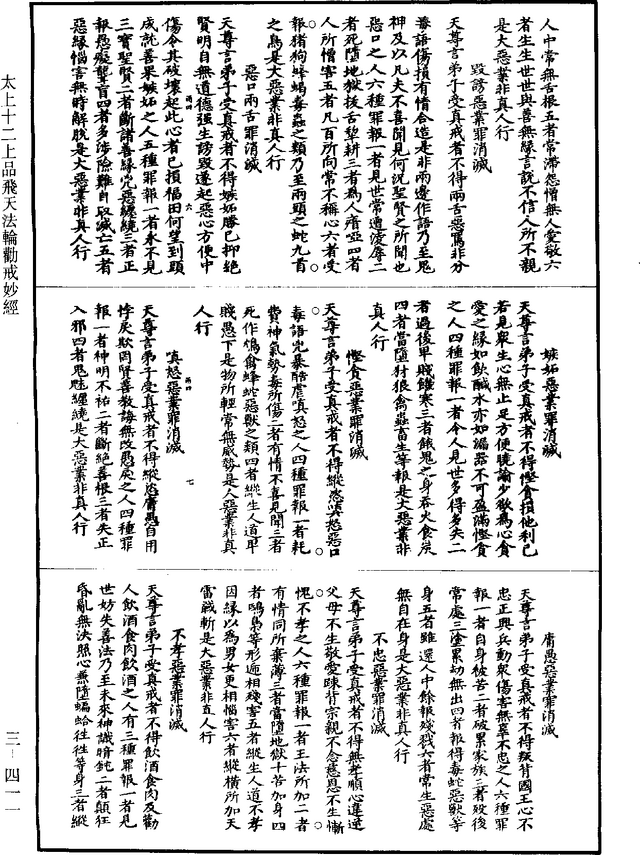 人中常無舌根五者常滯怨憎無人愛敬六
者生生世世與善無緣言說不信人所不親
是大惡業非真人行
毀謗惡業罪消滅
天尊言弟子受真戒者不得兩舌惡罵非分
毒語傷損有情合造是非兩邊作語乃至鬼
神及以凡夫不喜聞見何況聖賢之所聞也
惡口之人六種罪報一者見世常遭淩辱二
者死墮地獄拔舌犂耕三者為人瘖啞四者
人所憎害五者凡百所向常不稱心六者受
報猪狗蜂蝎毒蟲之類乃至兩頭之蛇九首
之鳥是大惡業非真人行
惡口兩舌罪消滅
天尊言弟子受真戒者不得嫉妬勝已抑絕
賢明自無道德强生謗毀遂起惡心方便中
傷令其破壞起此心者已損福田何望到頭
成託善果嫉妬之人五種罪報一者永不見
三寶聖賢二者斷諸善緣宂惡纏繞三者正
報愚癡聾盲四者多涉險難自取滅亡五者
惡緣惱害無時解脫是大惡業非真人行
嫉妬惡業罪消滅
天尊言弟子受真戒者不得慳貪損他利己
若見衆生心無止足方便曉諭少欲為心貪
愛之緣如飲醎水亦如漏器不可盈滿慳貪
之人四種罪報一者令人見世多得多失二
者過後卑賤饑寒三者餓鬼之身吞火食炭
四者當墮豺狼禽蟲畜生等報是大惡業非
真人行
慳貪惡業罪消滅
天尊言弟子受真戒者不得縱恣嗔恚惡口
毒語兇暴酷虐嗔恚之人四種罪報一者耗
費神氣勢毒所傷二者有情不喜見聞三者
死作鴆禽蜂蛇惡獸之類四者縱生人道卑
賤愚下是物所輕常無威勢是人惡業非真
人行
嗔怒惡業罪消滅
天尊言弟子受真戒者不得縱恣庸愚自用
悖戾欺罔賢善教誨無改愚戾之人四種罪
報一者神明不祐二者斷絕善根三者失正
入邪四者鬼魅纏繞是大惡業非真人行
庸愚惡業罪消滅
天尊言弟子受真戒者不得叛背國王心不
忠正興兵動衆傷害無辜不忠之人六種罪
報一者自身被苦二者破累家族三者歿後
常處三塗累劫無出四者報得毒蛇惡獸等
身五者雖還人中餘報殘戮六者常生惡處
無自在身是大惡業非真人行
不忠惡業罪消滅
天尊言弟子受真戒者不得無孝順心違逆
父母不生敬愛踈背宗親不念慈恩不生慚
愧不孝之人六種罪報一者王法所加二者
有情同所棄薄三者當墮地獄十苦加身四
者鴟鳥等形遞相殘害五者縱生人道不孝
因緣以為男女更相惱害六者縱橫所加天
雷誅斬是大惡業非真人行
不孝惡業罪消滅
天尊言弟子受真戒者不得飲酒食肉及勸
人飲酒食肉飲酒之人有三種罪報一者見
世妨失善法乃至未來神識暗鈍二者顛狂
昏亂無決照心無墮蝙蛤往往等身三者縱
太上十二上品飛天法輪勸戒妙經
三－四一一